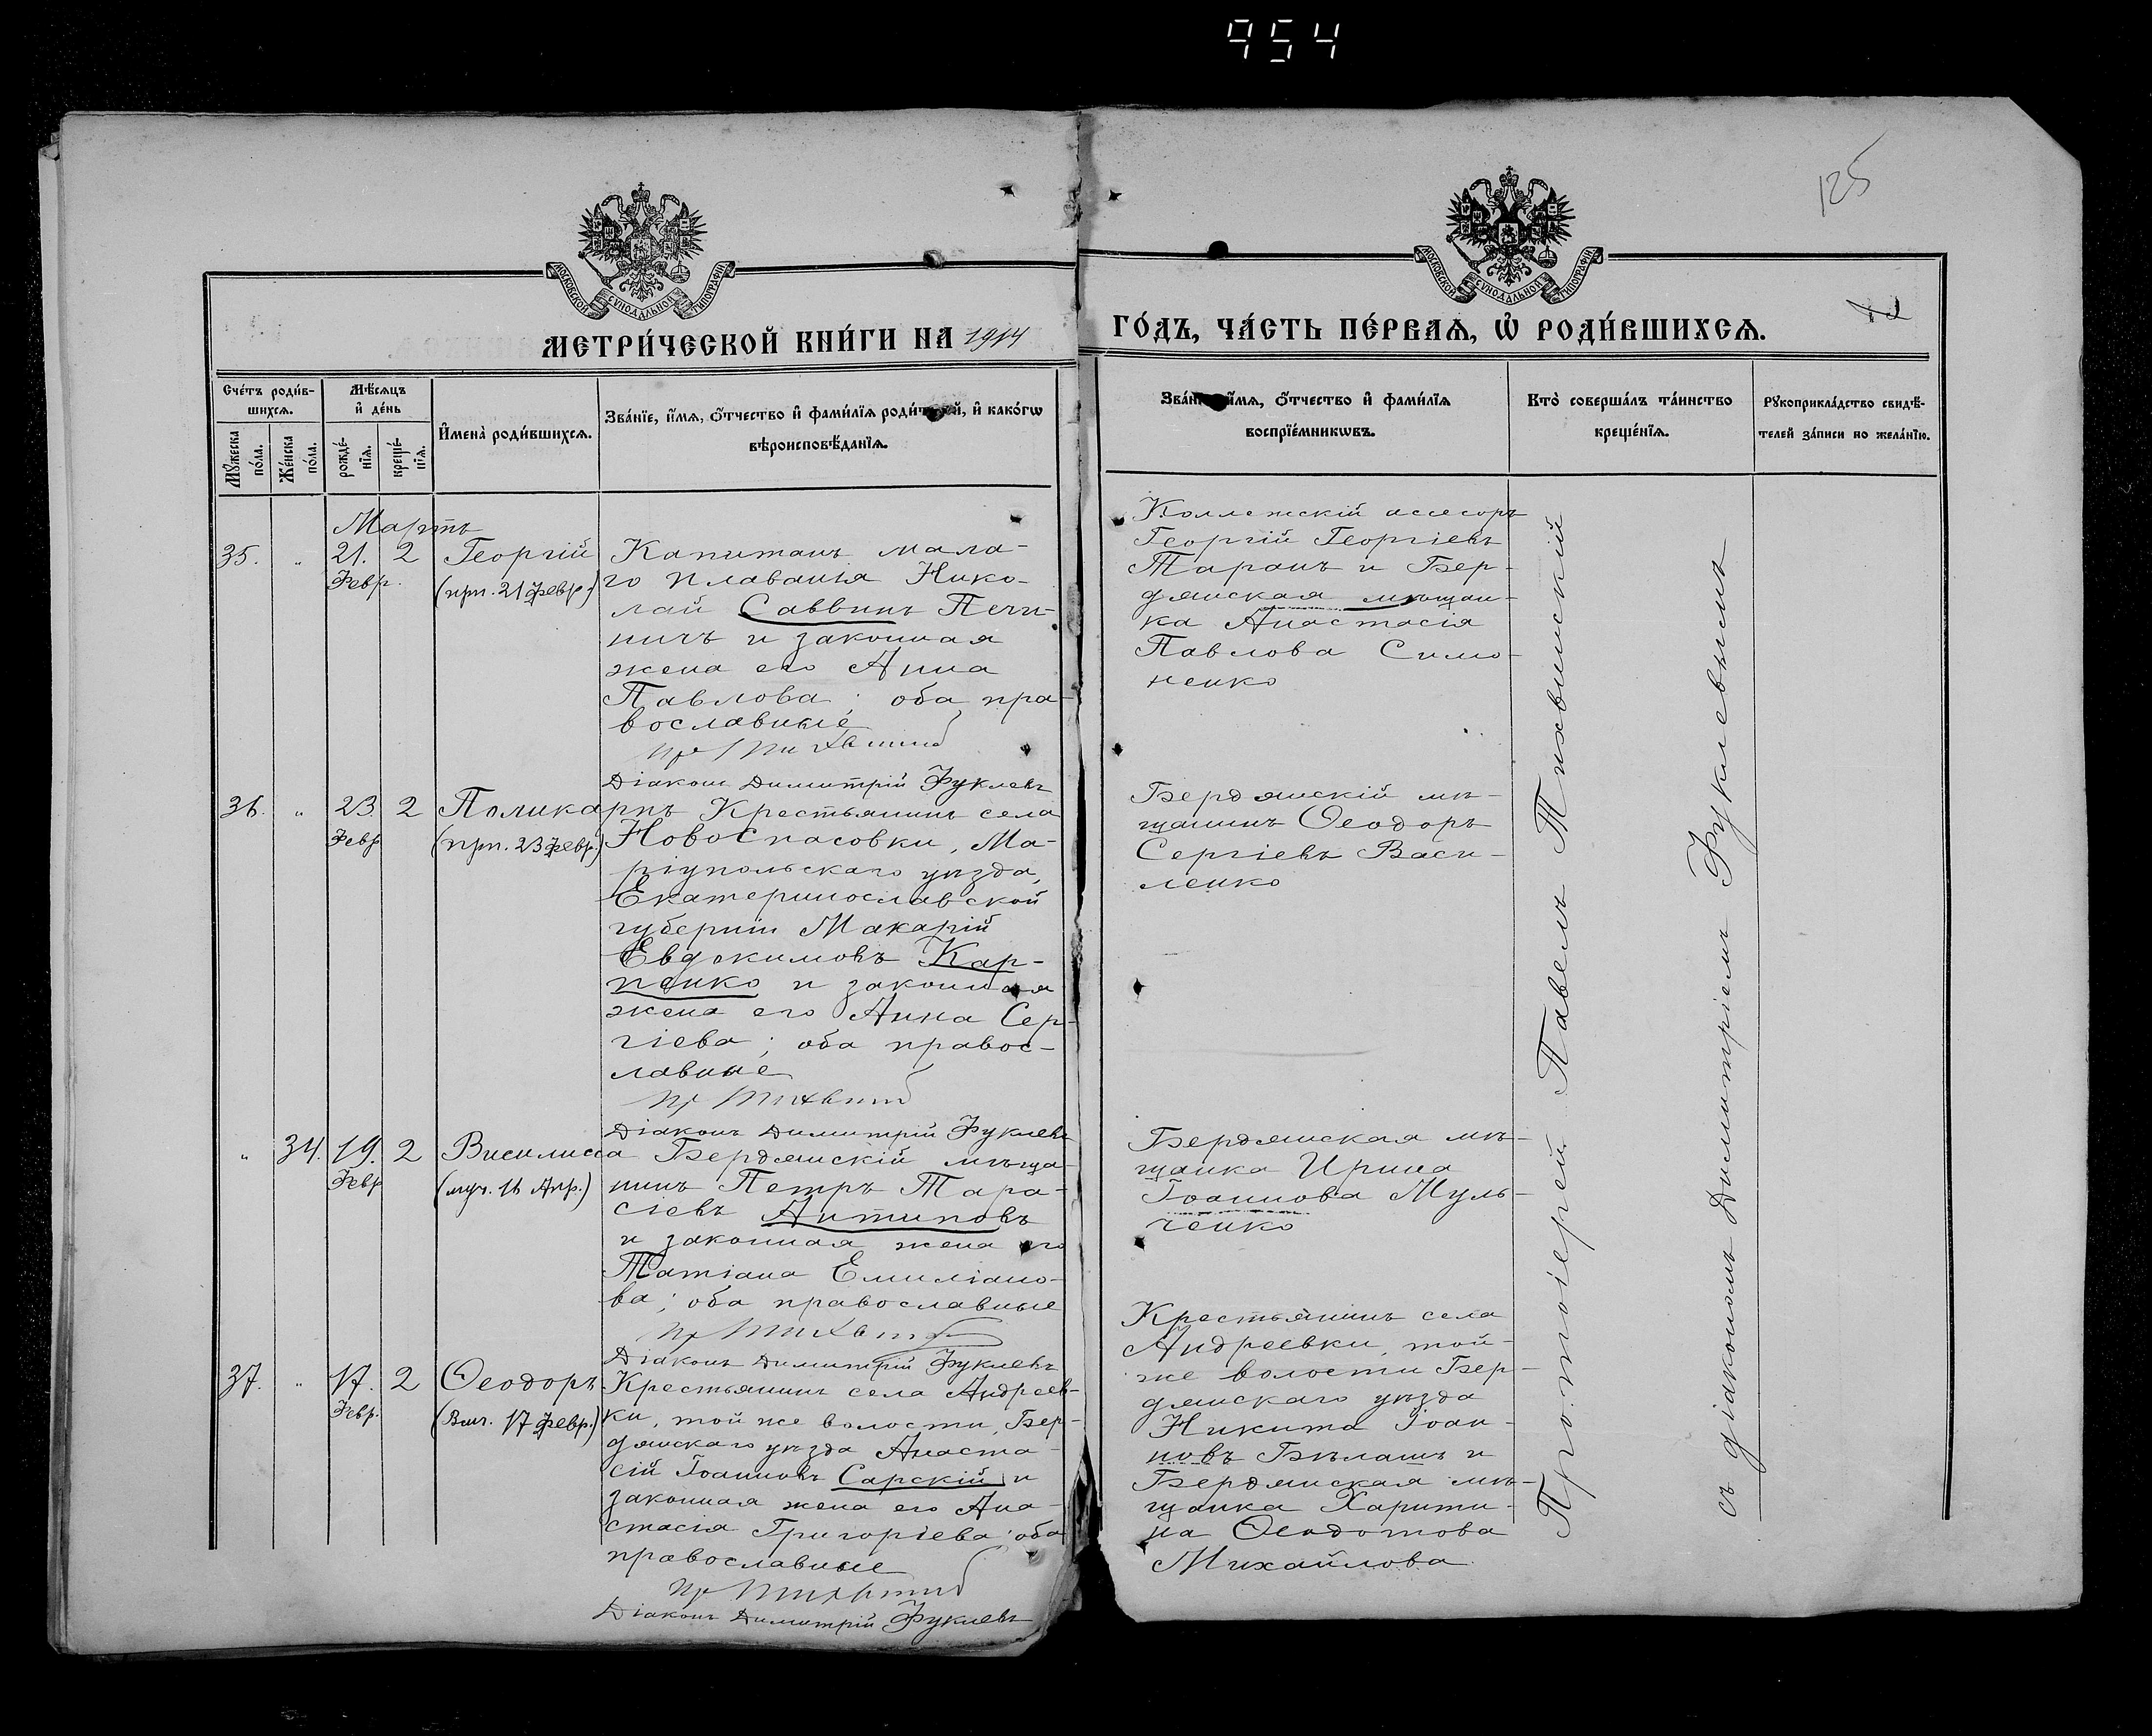 954
125
МОСКОВСКОЙ СУНОДАЛЬНОЙ ТИПОГРАФІИ
МОСКОВСКОЙ СУНОДАЛЬНОЙ ТИПОГРАФІИ
МЕТРИ́ЧЕСКОЙ КНИ́ГИ НА 1914
ГО́ДЪ, ЧА́СТЬ ПЕ́РВАѦ, Ѡ҆ РОДИ́ВШИХСѦ.
Сче́тъ роди́в-
шихсѧ.
Мѣ́сѧцъ
и҆ де́нь
Мꙋ́жеска
по́ла.
Же́нска
по́ла.
рожде́-
нїѧ.
креще́-
нїѧ.
И҆мена̀ роди́вшихсѧ.
Зва́нїе, и҆́мѧ, ѻ҆́тчество и҆ фами́лїѧ роди́телей, и҆ како́гѡ
вѣроисповѣ́данїѧ.
Зва́нїе, и҆́мѧ, ѻ҆́тчество и҆ фами́лїѧ
воспрїе́мникѡвъ.
Кто̀ соверша́лъ та́инство
креще́нїѧ.
Рꙋкоприкла́дство свидѣ́-
телей за́писи по жела́нїю.
Мартъ
35. „ 21. 2 Георгій
Февр. (прп. 21 Февр.)
Капитанъ мала-
го плаванія Нико-
лай Саввинъ Печи-
ничъ и законная
жена его Анна
Павлова; оба пра-
вославные
Діаконъ Димитрій Фуклевъ
Коллежскій ассесоръ
Георгій Георгіевъ
Таранъ и Бер-
дянская мѣщан-
ка Анастасія
Павлова Симо-
ненко
36. „ 23. 2 Поликарпъ
Февр. (прп. 23 Февр.)
Крестьянинъ села
Новоспасовки, Ма-
ріупольскаго уѣзда,
Екатеринославской
губерніи Макарій
Евдокимовъ Кар-
пенко и законная
жена его Анна Сер-
гіева; оба правос-
лавные
Діаконъ Димитрій Фуклевъ
Бердянскій мѣ-
щанинъ Ѳеодоръ
Сергіевъ Васи-
ленко
„ 34. 19. 2 Василисса
Февр. (муч. 16 Апр.)
Бердянскій мѣща-
нинъ Петръ Тара-
сіевъ Антиповъ
и законная жена его
Татіана Емиліано-
ва; оба православные
Діаконъ Димитрій Фуклевъ
Бердянская мѣ-
щанка Ирина
Іоаннова Муль-
ченко
37. „ 17. 2 Ѳеодоръ
Февр. (Вмч. 17 Февр.)
Крестьянинъ села Андреев-
ки, той же волости, Бер-
дянскаго уѣзда Анаста-
сій Іоанновъ Сарскій и
законная жена его Ана-
стасія Григоріева; оба
православные
Діаконъ Димитрій Фуклевъ
Крестьянинъ села
Андреевки, той-
же волости Бер-
дянскаго уѣзда
Никита Іоан-
новъ Бѣлашъ и
Бердянская мѣ-
щанка Харити-
на Ѳеодотова
Михайлова
Протоіерей Павелъ Тихвинскій
съ діакономъ Димитріемъ Фуклевымъ